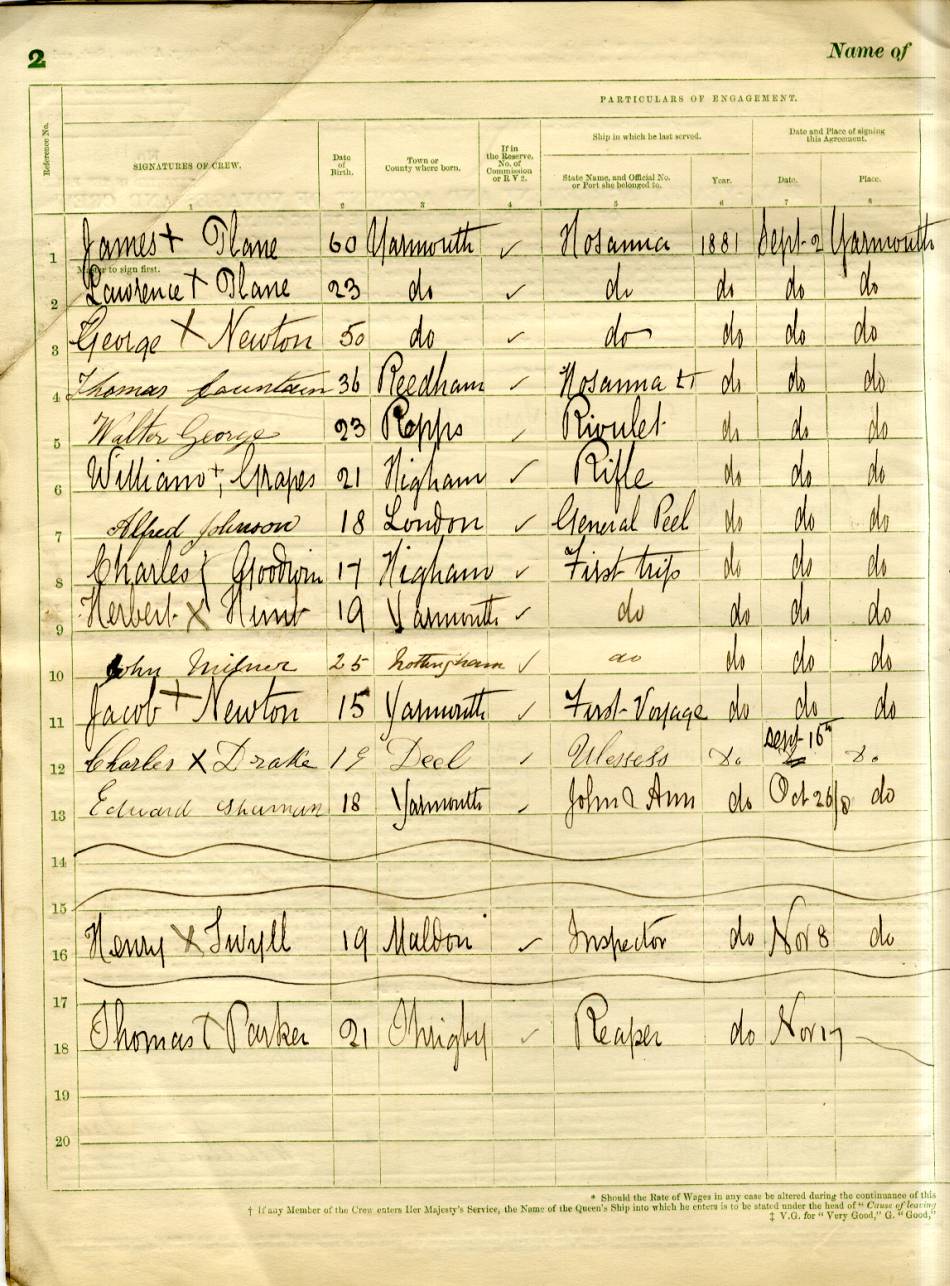 2 Name of
PARTICULARS OF ENGAGEMENT.
Reference No.
SIGNATURES OF CREW.
Date of Birth.
Town or County where born.
If in the Reserve, No. of Commission or R V 2.
Ship in which he last served.
Date and Place of signing this Agreement.
State Name, and Official No. or Port she belonged to.
Year.
Date.
Place.
1 2 3 4 5 6 7 8
1 James + Plane 60 Yarmouth ✓ Hosanna 1881 Sept 2 Yarmouth
Master to sign first.
2 Lawrence + Plane 23 do ✓ do do do do
3 George X Newton 50 do ✓ do do do do
4 Thomas Fountain 36 Reedham ✓ Hosanna do do do
5 Walter George 23 Repps ✓ Rivulet do do do
6 William + Grapes 21 Higham ✓ Rifle do do do
7 Alfred Johnson 18 London ✓ General Peel do do do
8 Charles Goodwin 17 Higham ✓ First trip do do do
9 Herbert X Hunt 19 Yarmouth ✓ do do do do
10 John Milner 25 Nottingham ✓ do do do do
11 Jacob + Newton 15 Yarmouth ✓ First Voyage do do do
12 Charles X Drake 19 Deel ✓ Ulessess Do Sept 16th Do
13 Edward Sharman 18 Yarmouth ✓ John & Ann do Oct 26/8 do
14
15
16 Henry X Twyll 19 Maldon ✓ Inspector do Nov 8 do
17
18 Thomas + Parker 21 Thrigby ✓ Reaper do Nov 17
19
20
* Should the Rate of Wages in any case be altered during the continuance of this
† If any Member of the Crew enters Her Majesty's Service, the Name of the Queen's Ship into which he enters is to be stated under the head of "Cause of leaving
‡ V.G. for "Very Good," G. "Good,"